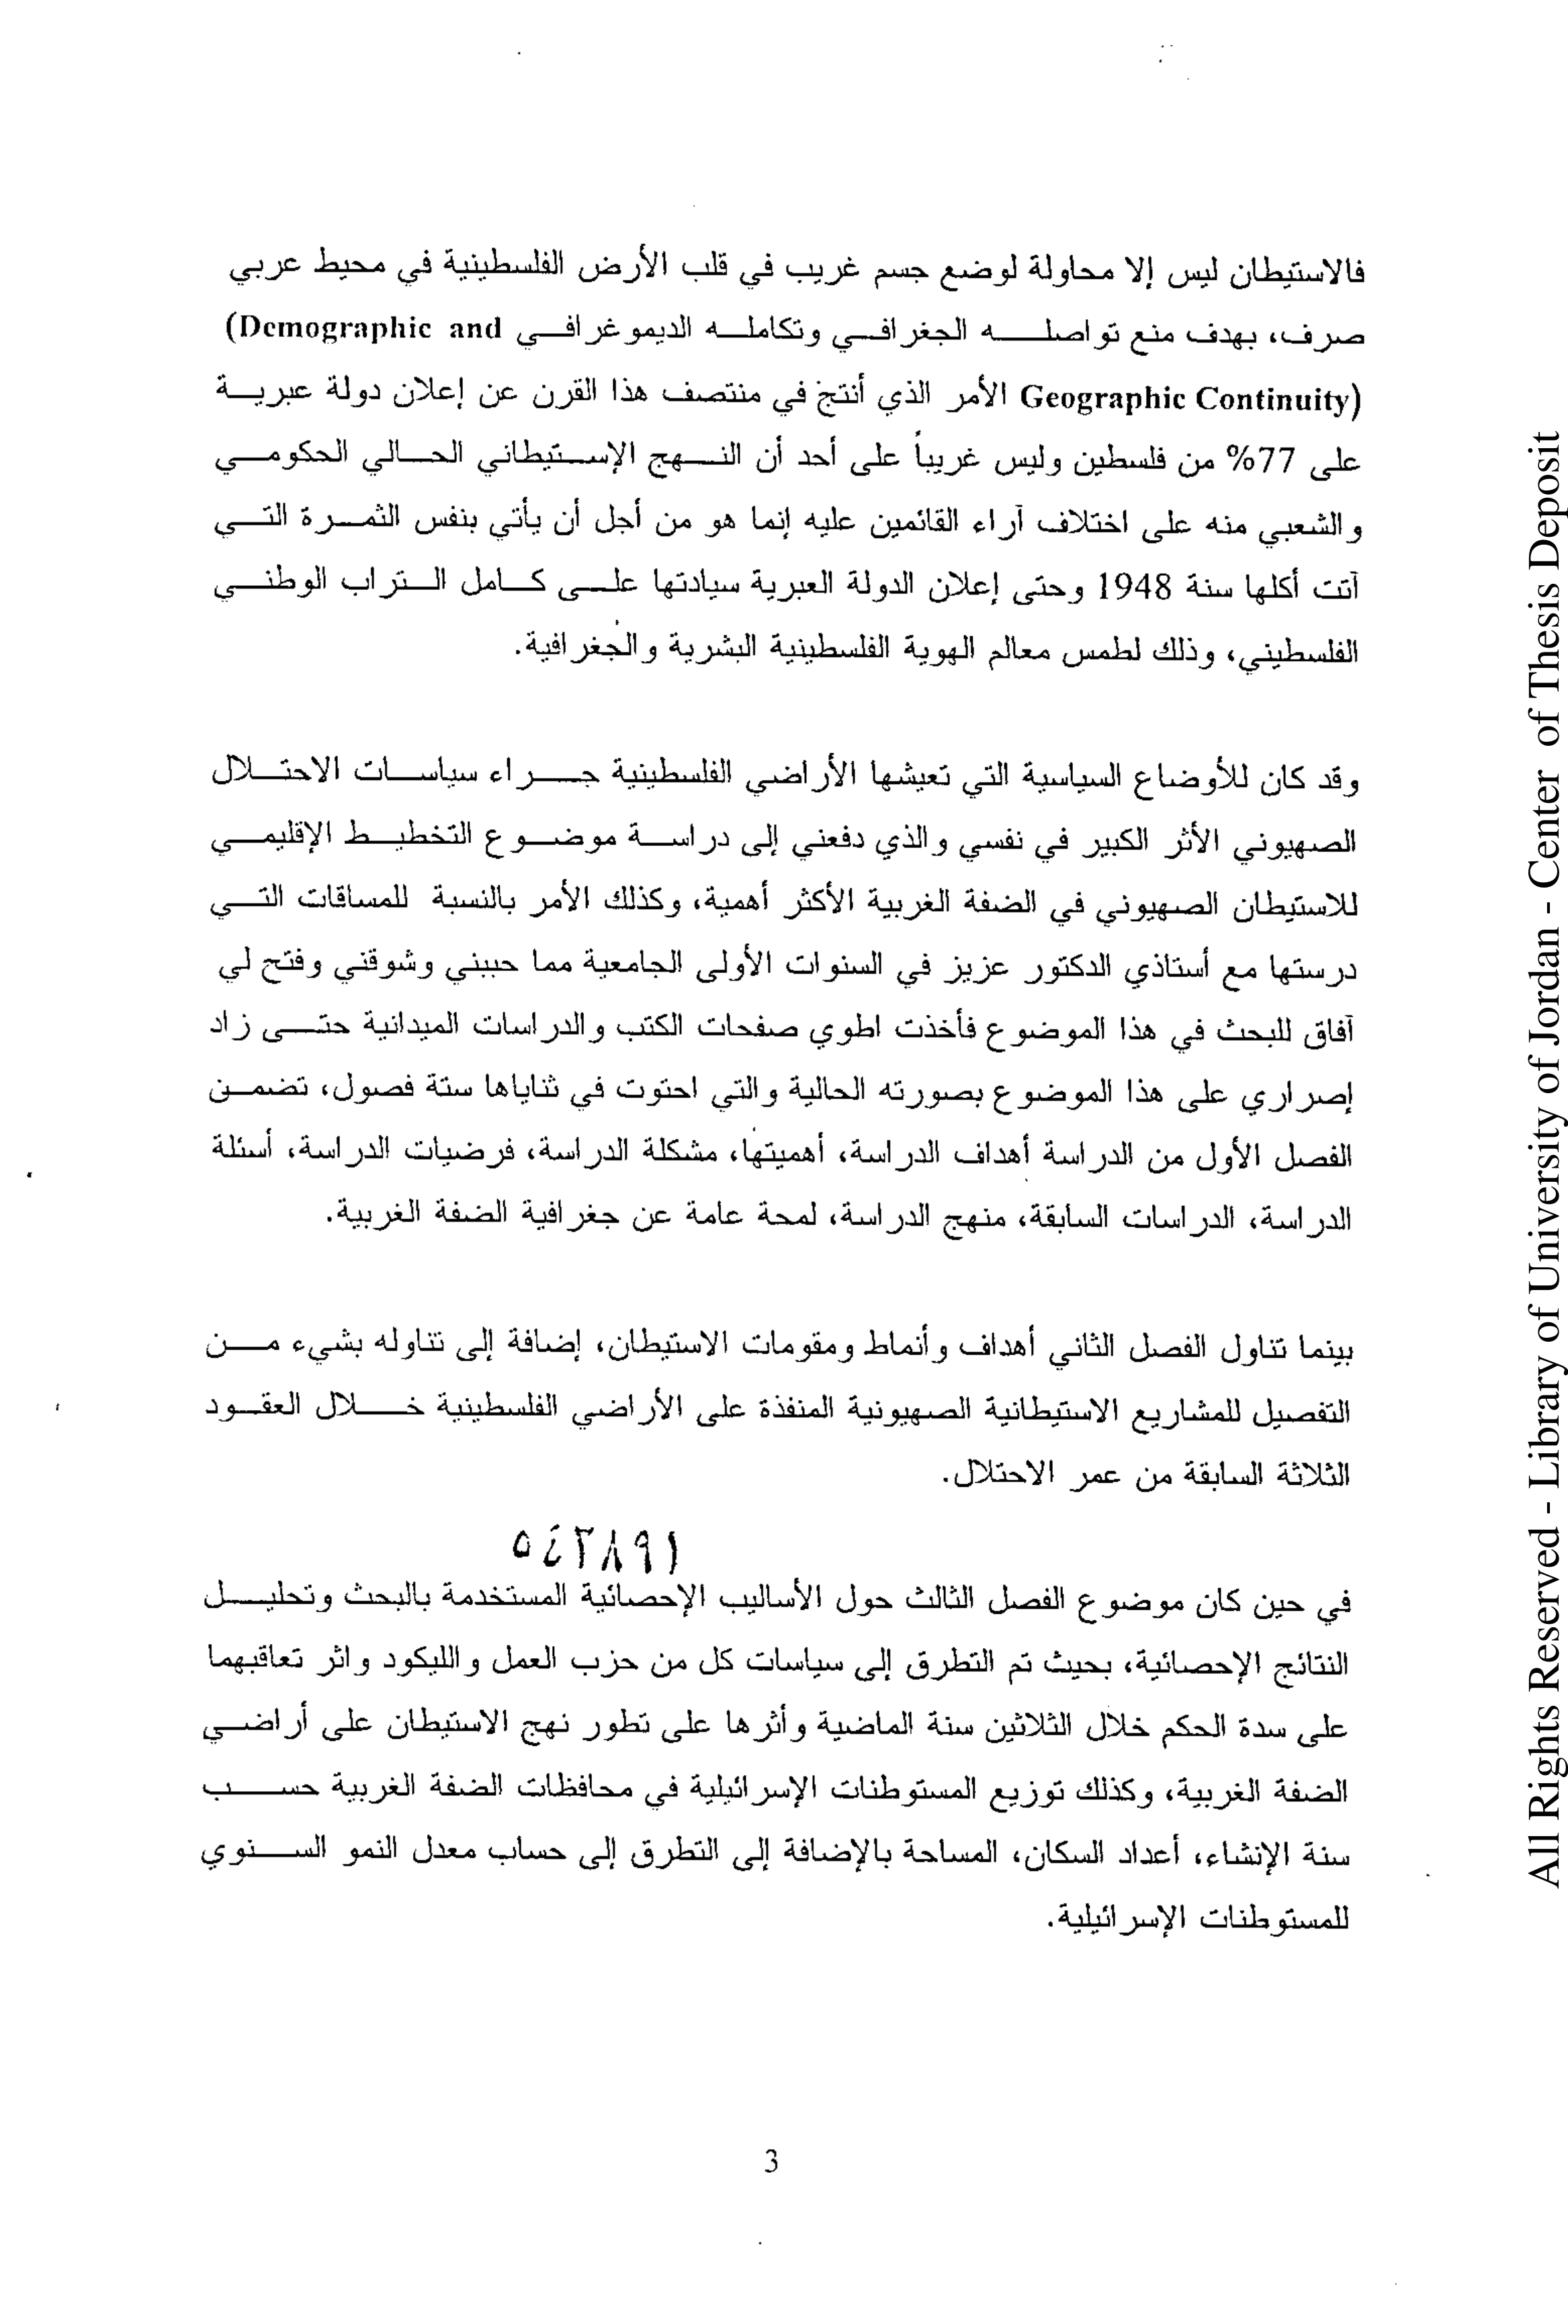 فالاستيطان ليس إلا محاولة لوضع جسم غريب في قلب الأرض الفلسطينية في محيط عربي
صرف، بهدف منع تواصله الجغرافي وتكامله الديموغرافي (Demographic and
Geographic Continuity) الأمر الذي أنتج في منتصف هذا القرن عن إعلان دولة عبرية
على 77% من فلسطين وليس غريباً على أحد أن النهج الإستيطاني الحالي الحكومي
والشعبي منه على اختلاف آراء القائمين عليه إنما هو من أجل أن يأتي بنفس الثمرة التي
آتت أكلها سنة 1948 وحتى إعلان الدولة العبرية سيادتها على كامل التراب الوطني
الفلسطيني، وذلك لطمس معالم الهوية الفلسطينية البشرية والجغرافية.
وقد كان للأوضاع السياسية التي تعيشها الأراضي الفلسطينية جراء سياسات الاحتلال
الصهيوني الأثر الكبير في نفسي والذي دفعني إلى دراسة موضوع التخطيط الإقليمي
للاستيطان الصهيوني في الضفة الغربية الأكثر أهمية، وكذلك الأمر بالنسبة للمساقات التي
درستها مع أستاذي الدكتور عزيز في السنوات الأولى الجامعية مما حببني وشوقني وفتح لي
آفاق للبحث في هذا الموضوع فأخذت اطوي صفحات الكتب والدراسات الميدانية حتى زاد
إصراري على هذا الموضوع بصورته الحالية والتي احتوت في ثناياها ستة فصول، تضمن
الفصل الأول من الدراسة أهداف الدراسة، أهميتها، مشكلة الدراسة، فرضيات الدراسة، أسئلة
الدراسة، الدراسات السابقة، منهج الدراسة، لمحة عامة عن جغرافية الضفة الغربية.
بينما تناول الفصل الثاني أهداف وأنماط ومقومات الاستيطان، إضافة إلى تناوله بشيء من
التفصيل للمشاريع الاستيطانية الصهيونية المنفذة على الأراضي الفلسطينية خلال العقود
الثلاثة السابقة من عمر الاحتلال.
٥٤٣٨٩١
في حين كان موضوع الفصل الثالث حول الأساليب الإحصائية المستخدمة بالبحث وتحليل
النتائج الإحصائية، بحيث تم التطرق إلى سياسات كل من حزب العمل والليكود واثر تعاقبهما
على سدة الحكم خلال الثلاثين سنة الماضية وأثرها على تطور نهج الاستيطان على أراضي
الضفة الغربية، وكذلك توزيع المستوطنات الإسرائيلية في محافظات الضفة الغربية حسب
سنة الإنشاء، أعداد السكان، المساحة بالإضافة إلى التطرق إلى حساب معدل النمو السنوي
للمستوطنات الإسرائيلية.
3
All Rights Reserved - Library of University of Jordan - Center of Thesis Deposit